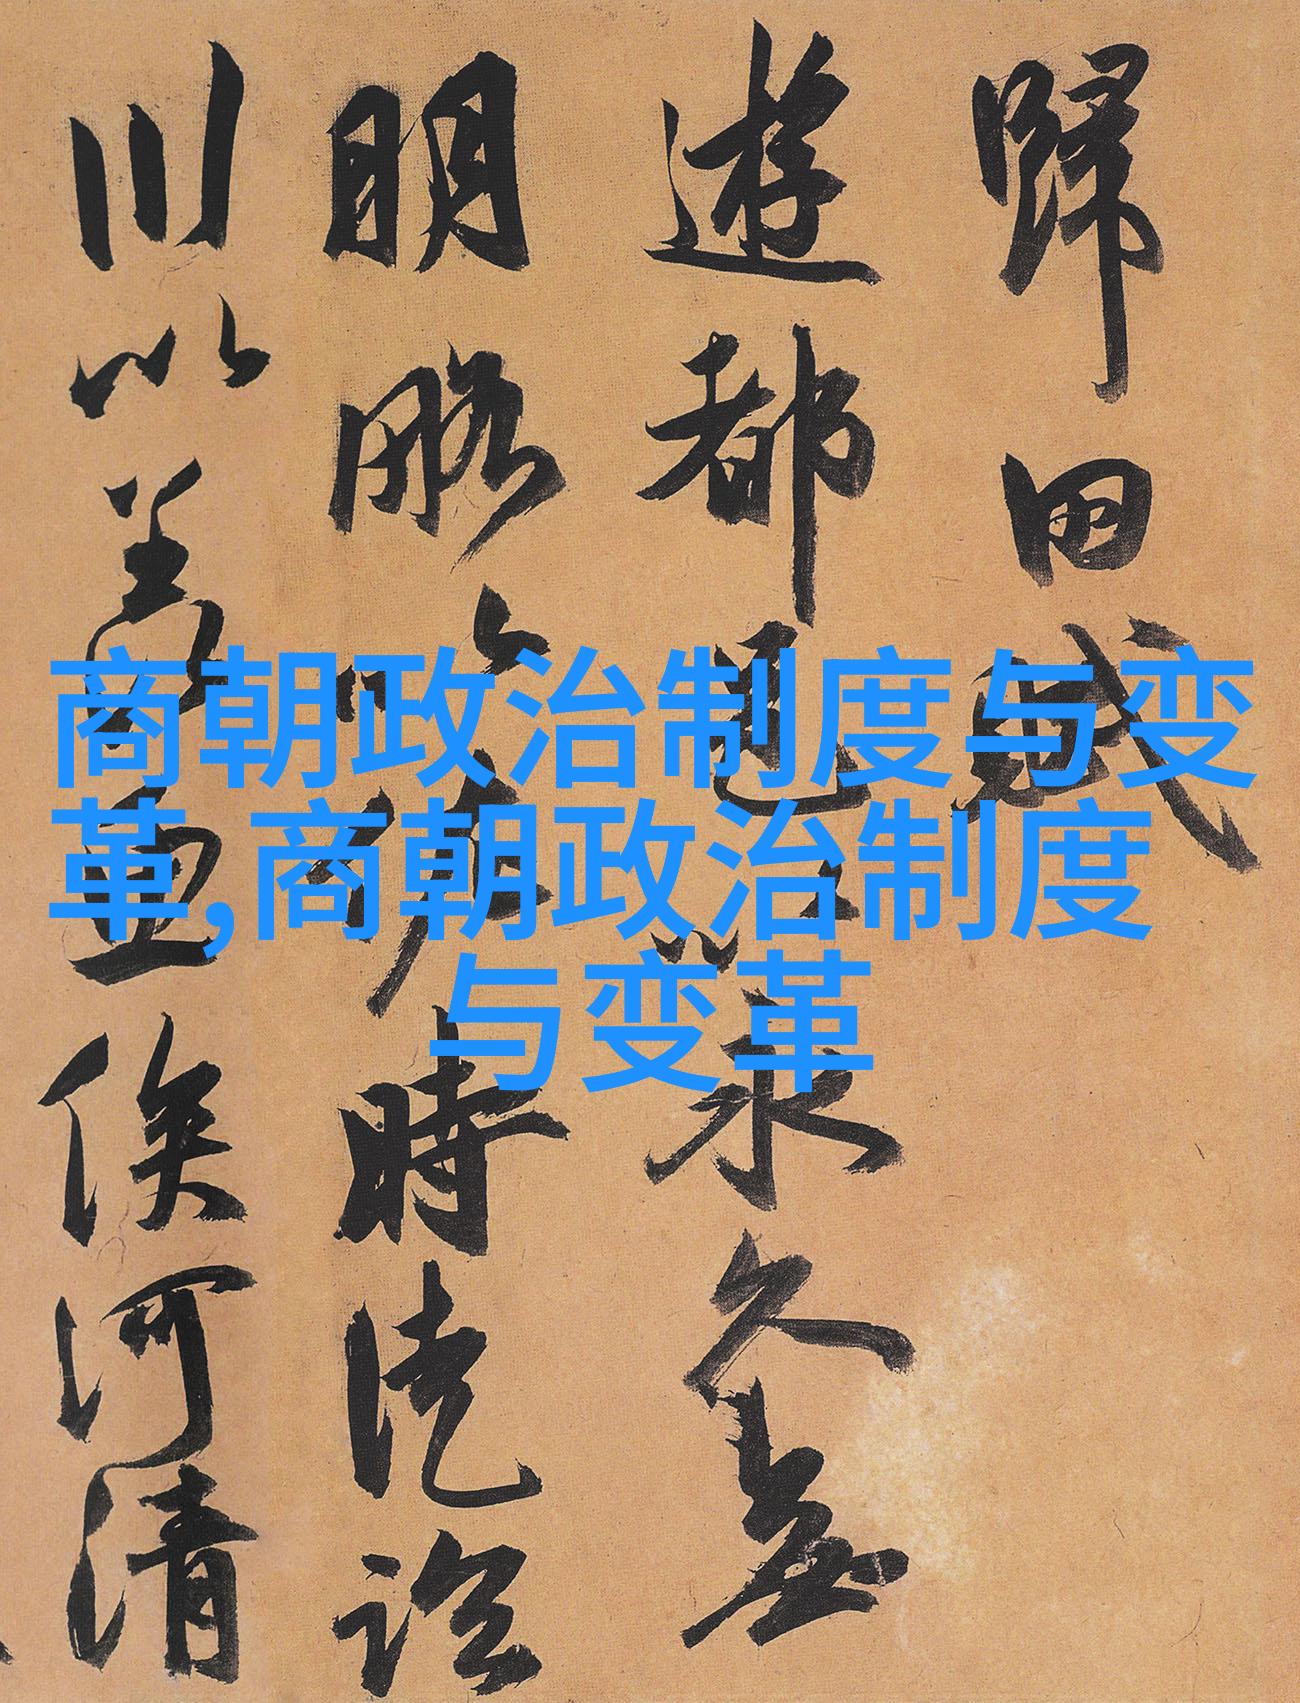 歸田賦
遊都邑以永久無
明略以佐時徒臨
川以羡魚俟河清
商朝政治制度与变
革,商朝政治制度
与变革